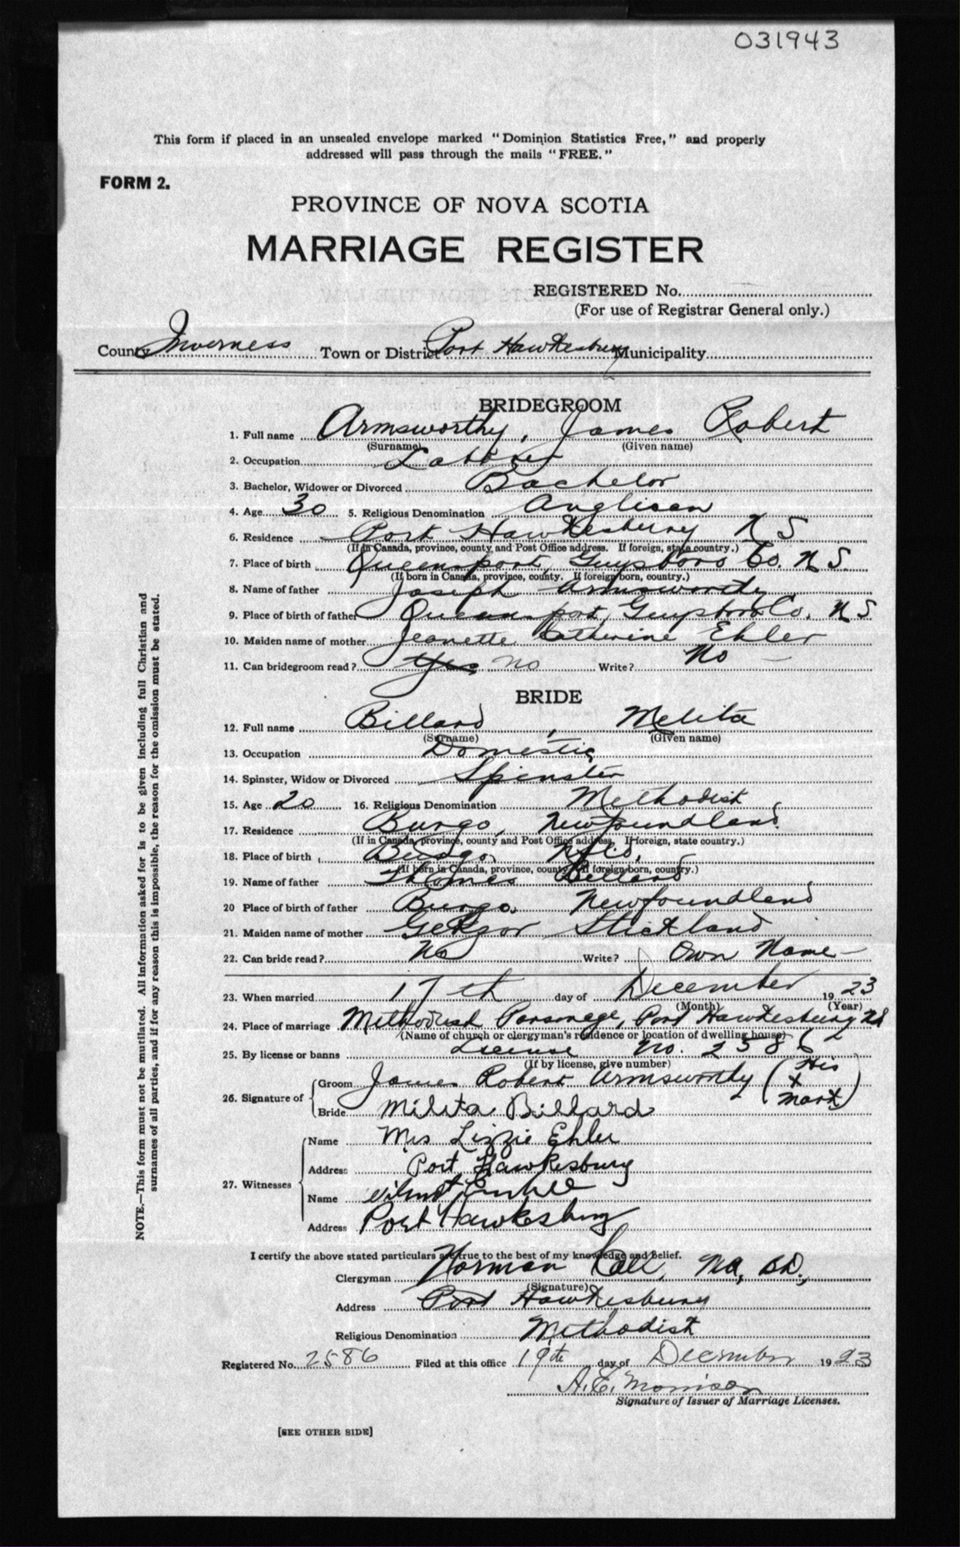 031943
This form if placed in an unsealed envelope marked "Dominion Statistics Free," and properly
addressed will pass through the mails "FREE."
FORM 2.
PROVINCE OF NOVA SCOTIA
MARRIAGE REGISTER
REGISTERED No.
(For use of Registrar General only.)
County Inverness Town or District Port Hawkesbury Municipality
BRIDEGROOM
1. Full name Armsworthy, James Robert
(Surname) (Given name)
2. Occupation Laborer
3. Bachelor, Widower or Divorced Bachelor
4. Age 30 5. Religious Denomination Anglican
6. Residence Port Hawkesbury N S
(If in Canada, province, county, and Post Office address. If foreign, state country.)
7. Place of birth Queensport, Guysboro Co. N S
(If born in Canada, province, county. If foreign born, country.)
8. Name of father Joseph Armsworthy
9. Place of birth of father Queensport, Guysboro Co. N S
10. Maiden name of mother Jeanette Catherine Ehler
11. Can bridegroom read? Yes no Write? No
BRIDE
12. Full name Billard, Melita
(Surname) (Given name)
13. Occupation Domestic
14. Spinster, Widow or Divorced Spinster
15. Age 20 16. Religious Denomination Methodist
17. Residence Burgo, Newfoundland
(If in Canada, province, county and Post Office address. If foreign, state country.)
18. Place of birth Burgo, Nfld,
(If born in Canada, province, county. If foreign born, country.)
19. Name of father Thomas Billard
20 Place of birth of father Burgo, Newfoundland
21. Maiden name of mother Strickland
22. Can bride read? No Write? Own Name
23. When married 17th day of December 1923
(Month) (Year)
24. Place of marriage Methodist Parsonage, Port Hawkesbury NS
(Name of church or clergyman's residence or location of dwelling house)
25. By license or banns License No. 2586
(If by license, give number)
26. Signature of Groom James Robert Armsworthy (His X Mark)
Bride Milita Billard
27. Witnesses Name Mrs Lizzie Ehler
Address Port Hawkesbury
Name Wilmot
Address Port Hawkesbury
I certify the above stated particulars are true to the best of my knowledge and belief.
Clergyman Norman MA, BD.,
(Signature)
Address Port Hawkesbury
Religious Denomination Methodist
Registered No. 2586 Filed at this office 19th day of December 1923
A. E. Morrison
Signature of Issuer of Marriage Licenses.
[SEE OTHER SIDE]
NOTE.—This form must not be mutilated. All information asked for is to be given including full Christian and
surnames of all parties, and if for any reason this is impossible, the reason for the omission must be stated.